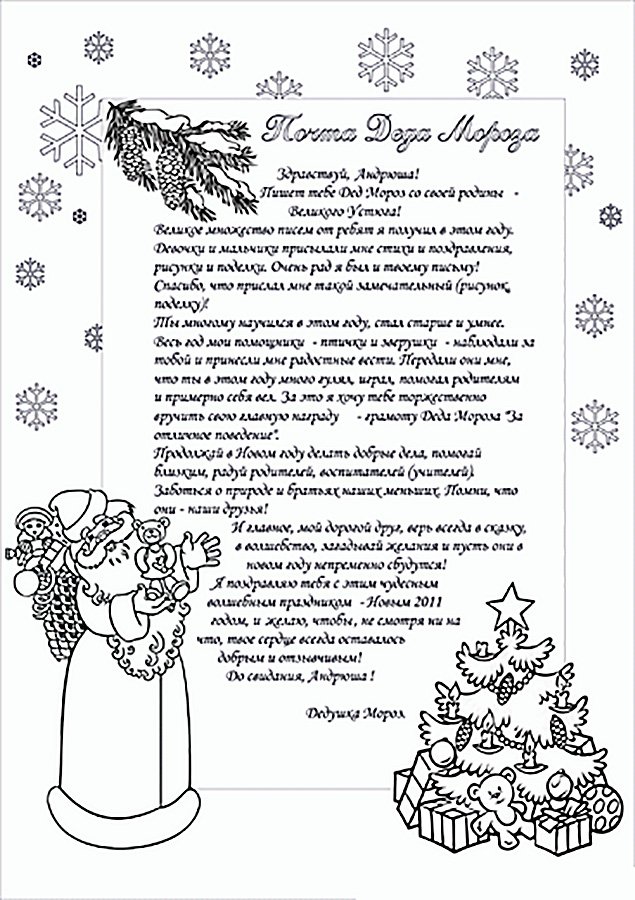 Почта Деда Мороза
Здравствуй, Андрюша!
Пишет тебе Дед Мороз со своей родины -
Великого Устюга!
Великое множество писем от ребят я получил в этом году.
Девочки и мальчики присылали мне стихи и поздравления,
рисунки и поделки. Очень рад я был и твоему письму!
Спасибо, что прислал мне такой замечательный (рисунок,
поделку)!
Ты многому научился в этом году, стал старше и умнее.
Весь год мои помощники - птички и зверушки - наблюдали за
тобой и принесли мне радостные вести. Передали они мне,
что ты в этом году много гулял, играл, помогал родителям
и примерно себя вел. За это я хочу тебе торжественно
вручить свою главную награду - грамоту Деда Мороза "За
отличное поведение".
Продолжай в Новом году делать добрые дела, помогай
близким, радуй родителей, воспитателей (учителей).
Заботься о природе и братьях наших меньших. Помни, что
они - наши друзья!
И главное, мой дорогой друг, верь всегда в сказку,
в волшебство, загадывай желания и пусть они в
новом году непременно сбудутся!
Я поздравляю тебя с этим чудесным
волшебным праздником - Новым 2011
годом, и желаю, чтобы, не смотря ни на
что, твое сердце всегда оставалось
добрым и отзывчивым!
До свидания, Андрюша !
Дедушка Мороз.